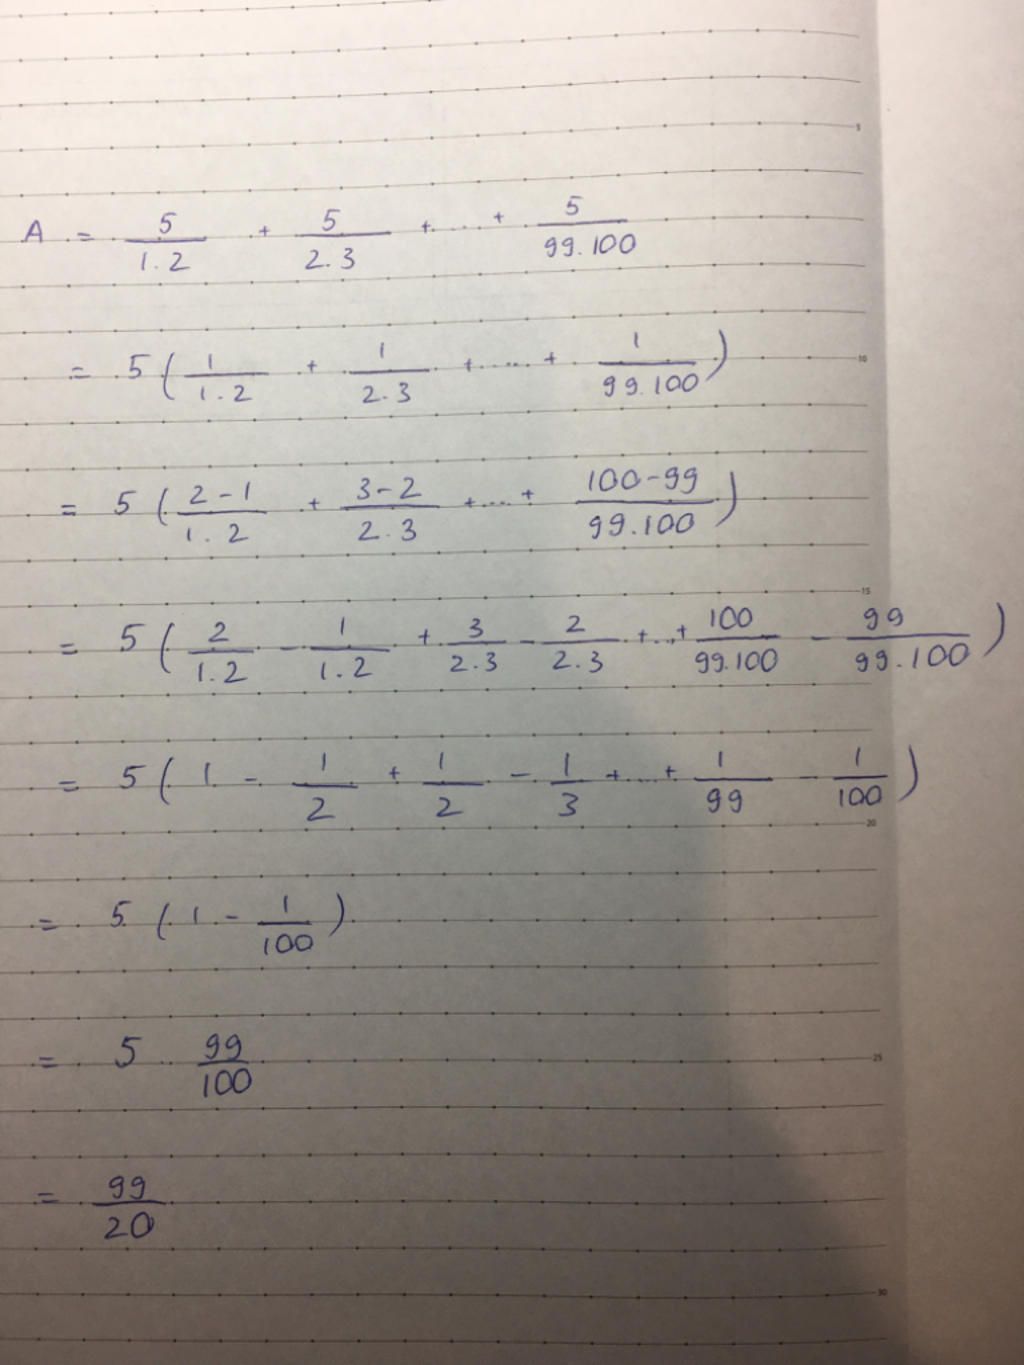 A = 5/1.2 + 5/2.3 + .... + 5/99.100
= 5 ( 1/1.2 + 1/2.3 + .... + 1/99.100 )
= 5 ( 2-1/1.2 + 3-2/2.3 + .... + 100-99/99.100 )
= 5 ( 2/1.2 - 1/1.2 + 3/2.3 - 2/2.3 + ... + 100/99.100 - 99/99.100 )
= 5 ( 1 - 1/2 + 1/2 - 1/3 + .... + 1/99 - 1/100 )
= 5 ( 1 - 1/100 )
= 5 . 99/100
= 99/20
5
10
15
20
25
30